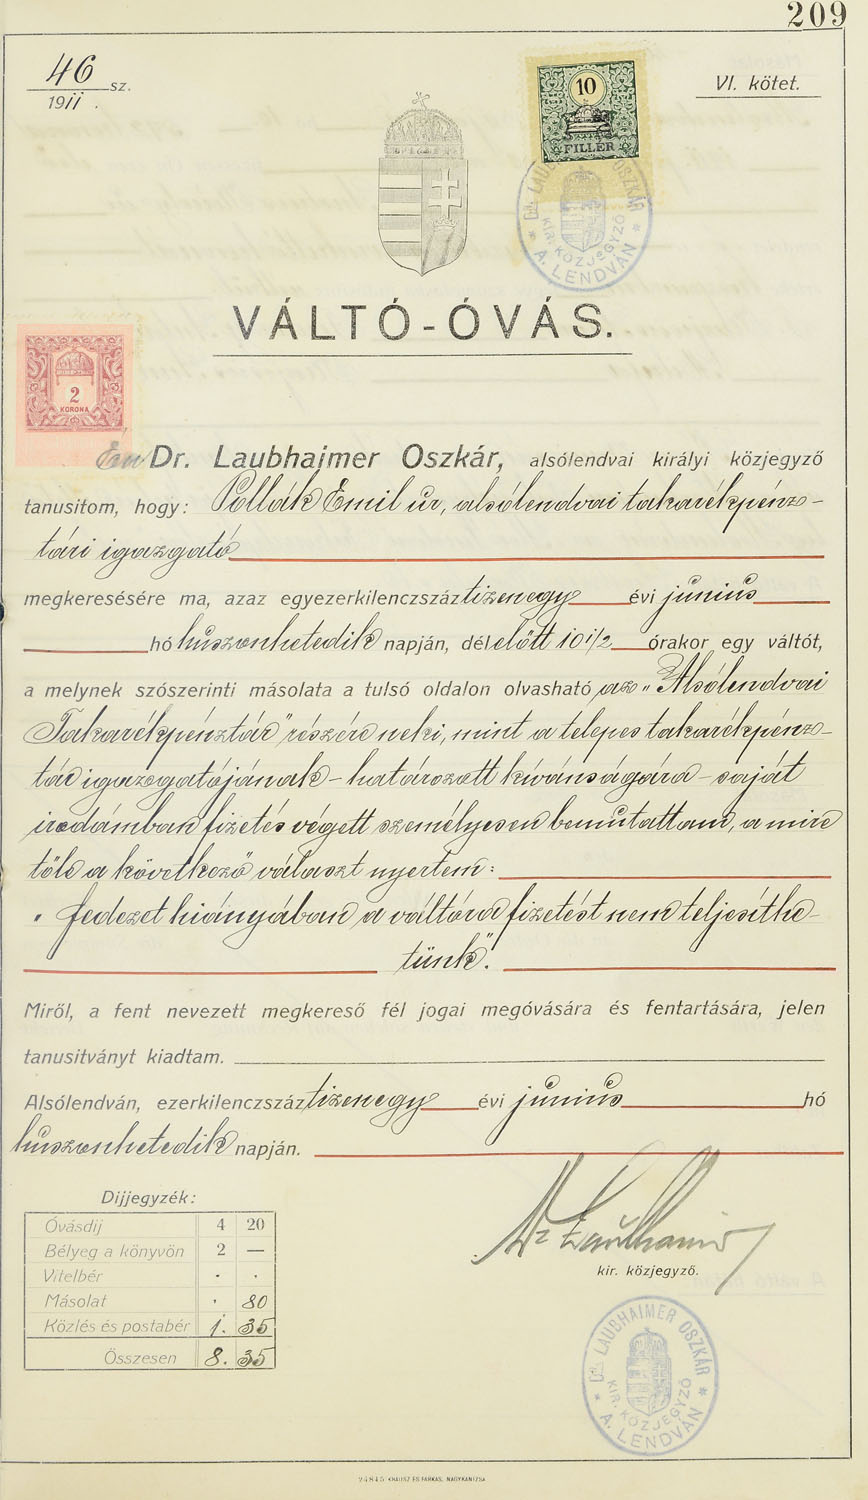 209
46 sz.
1911.
VI. kötet.
10
FILLÉR
DR. LAUBHAIMER OSZKÁR
KIR. KÖZJEGYZŐ
* A. LENDVÁN *
VÁLTÓ-ÓVÁS.
2
KORONA
Én Dr. Laubhaimer Oszkár, alsólendvai királyi közjegyző
tanusitom, hogy: Pollák Emil úr, alsólendvai takarékpénz-
tári igazgató
megkeresésére ma, azaz egyezerkilenczszáztizenegy évi június
hó huszonhetedik napján, délelőtt 10 1/2 órakor egy váltót,
a melynek szószerinti másolata a tulsó oldalon olvasható az „Alsólendvai
Takarékpénztár" részére neki, mint a telepes takarékpénz-
tár igazgatójának – határozott kívánságára – saját
irodámban fizetés végett személyesen bemutattam, a mire
tőle a következő választ nyertem:
„fedezet hiányában a váltóra fizetést nem teljesíthe-
tünk".
Miről, a fent nevezett megkereső fél jogai megóvására és fentartására, jelen
tanusitványt kiadtam.
Alsólendván, ezerkilenczszáztizenegy évi június hó
huszonhetedik napján.
Dijjegyzék:
Óvásdij 4 20
Bélyeg a könyvön 2 —
Vitelbér . .
Másolat . 80
Közlés és postabér 1. 35
Összesen 8. 35
Dr Laubhaimer
kir. közjegyző.
DR. LAUBHAIMER OSZKÁR
KIR. KÖZJEGYZŐ
* A. LENDVÁN *
24845 KRAUSZ ÉS FARKAS, NAGYKANIZSA